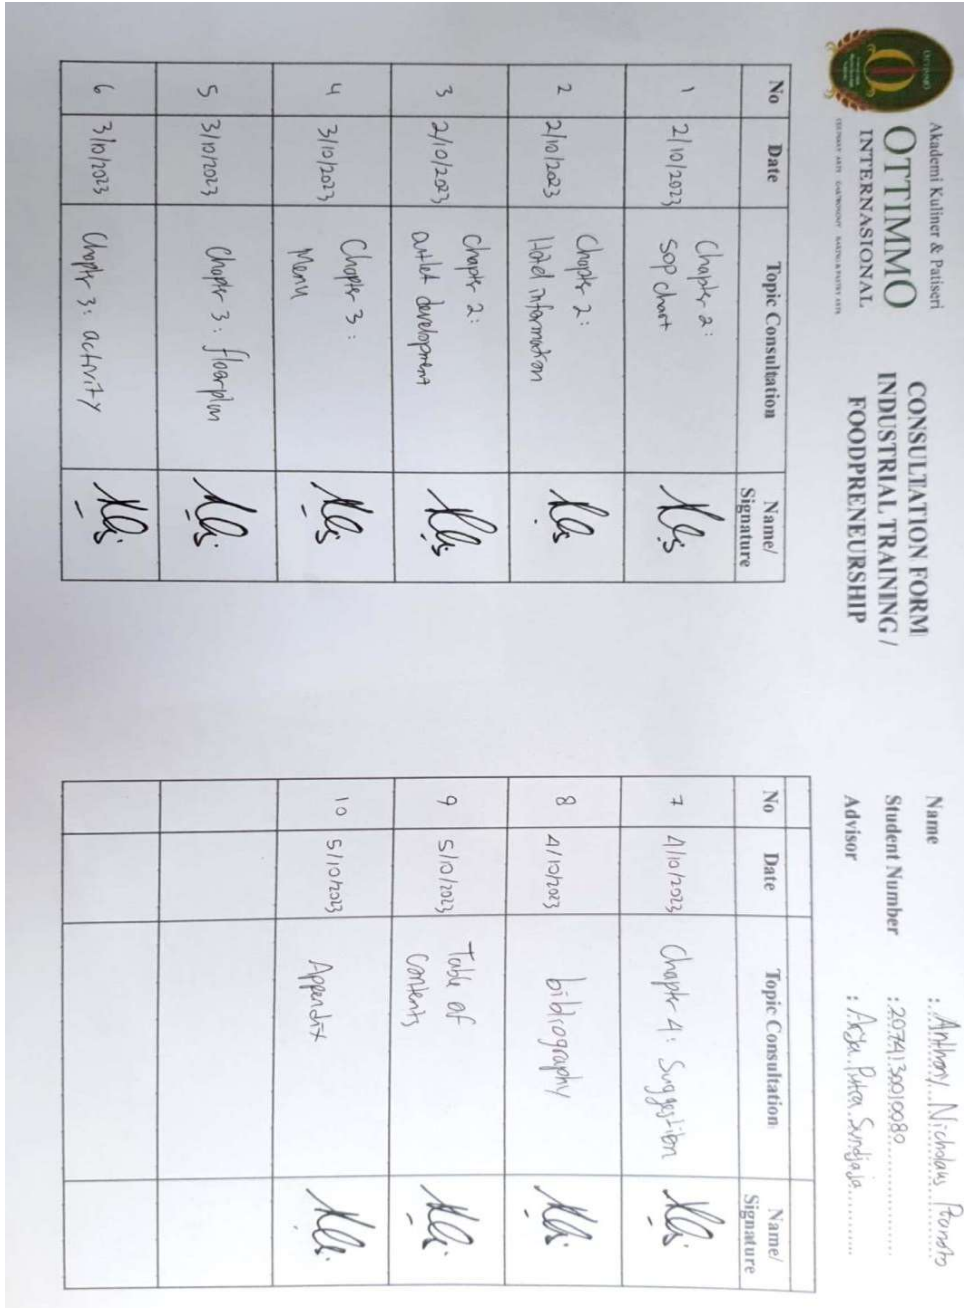 OTTIMMO
Akademi Kuliner & Patiseri
OTTIMMO
INTERNASIONAL
CONSULTATION FORM
INDUSTRIAL TRAINING /
FOODPRENEURSHIP
Name : Anthony Nicholaus
Student Number : 2074130010080
Advisor : Arya Putra Sundjaja
No Date Topic Consultation Name/
Signature
1 2/10/2023 Chapter 2:
SOP chart
2 2/10/2023 Chapter 2:
Hotel information
3 2/10/2023 Chapter 2:
outlet development
4 3/10/2023 Chapter 3:
Menu
5 3/10/2023 Chapter 3: floorplan
6 3/10/2023 Chapter 3: activity
No Date Topic Consultation Name/
Signature
7 4/10/2023 Chapter 4: Suggestion
8 4/10/2023 bibliography
9 5/10/2023 Table of
Contents
10 5/10/2023 Appendix